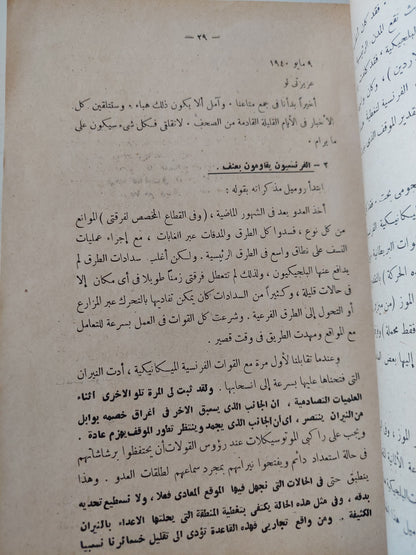 — ٣٩ —
٩ مايو ١٩٤٠
عزيزتى لو
أخيراً بدأنا فى جمع متاعنا، وآمل ألا يكون ذلك هباء، وستتلقين كل
الأخبار فى الأيام القليلة القادمة من الصحف. لا تقلقى فكل شىء سيكون على
ما يرام.
٢ – الفرنسيون يقاومون بعنف.
ابتدأ روميل مذكراته بقوله:
أخذ العدو بعد الشهور الماضية، (وفى القطاع المخصص لفرقتى) الموانع
من كل نوع، فسدوا كل الطرق والمدقات عبر الغابات، مع إجراء عمليات
النسف على نطاق واسع فى الطرق الرئيسية. ولكن أغلب سدادات الطرق لم
يدافع عنها البلجيكيون، ولذلك لم تتعطل فرقتى زمناً طويلا فى أى مكان إلا
فى حالات قليلة، وكثيراً من السدادات كان يمكن تفاديها بالتحرك عبر المزارع
أو التحول إلى الطرق الفرعية. وشرعت كل القوات فى العمل بسرعة للتعامل
مع المواقع ومهدت الطريق فى وقت قصير.
وعندما تقابلنا لأول مرة مع القوات الفرنسية الميكانيكية، أدت النيران
التى فتحناها عليها بسرعة إلى انسحابها. ولقد ثبت لى المرة تلو الاخرى أثناء
العلميات التصادمية، ان الجانب الذى يسبق الآخر فى اغراق خصمه بوابل
من النيران ينتصر، أى أن الجانب الذى يجمد وينتظر تطور الموقف يهزم عادة.
ويجب على راكبى الموتوسيكلات عند رؤوس القولات أن يحتفظوا برشاشاتهم
فى حالة استعداد دائم ويفتحوا نيرانهم بمجرد سماعهم لطلقات العدو. وهذا
ينطبق حتى فى الحالات التى نجهل فيها الموقع المعادى فعلا، ولا نستطيع تحديه
بدقه. وفى مثل هذه الحالة يكتفى بتغطية المنطقة التى يحتلها الاعداء بالنيران
الكثيفة. ومن واقع تجاربى فهذه القاعدة تؤدى الى تقليل خسائرنا نسبيا